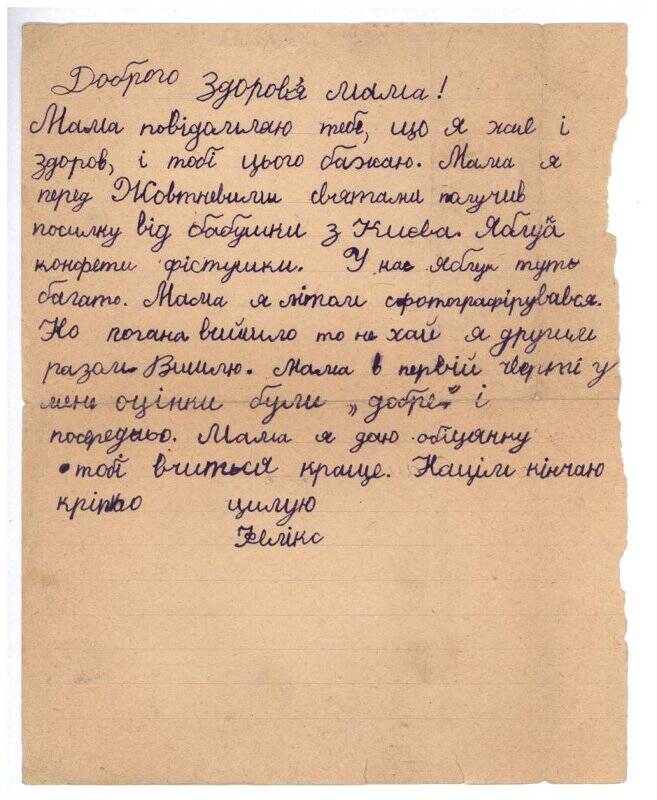 Доброго здоров'я мама!
Мама повідомляю тебе, що я жив і
здоров, і тобі цього бажаю. Мама я
перед Жовтневими святами получив
посилку від бабушки з Києва. Яблуӥ
конфети фістушки. У нас Яблук туть
багато. Мама я літом сфотографірувався.
Но погана вийшло то не хай я другим
разом Вишлю. Мама в первій черті у
мене оцінки були „добре" і
посредньо. Мама я даю обіцянку
тобі вчиться краще. Націм кінчаю
кріпко цилую
Фелікс